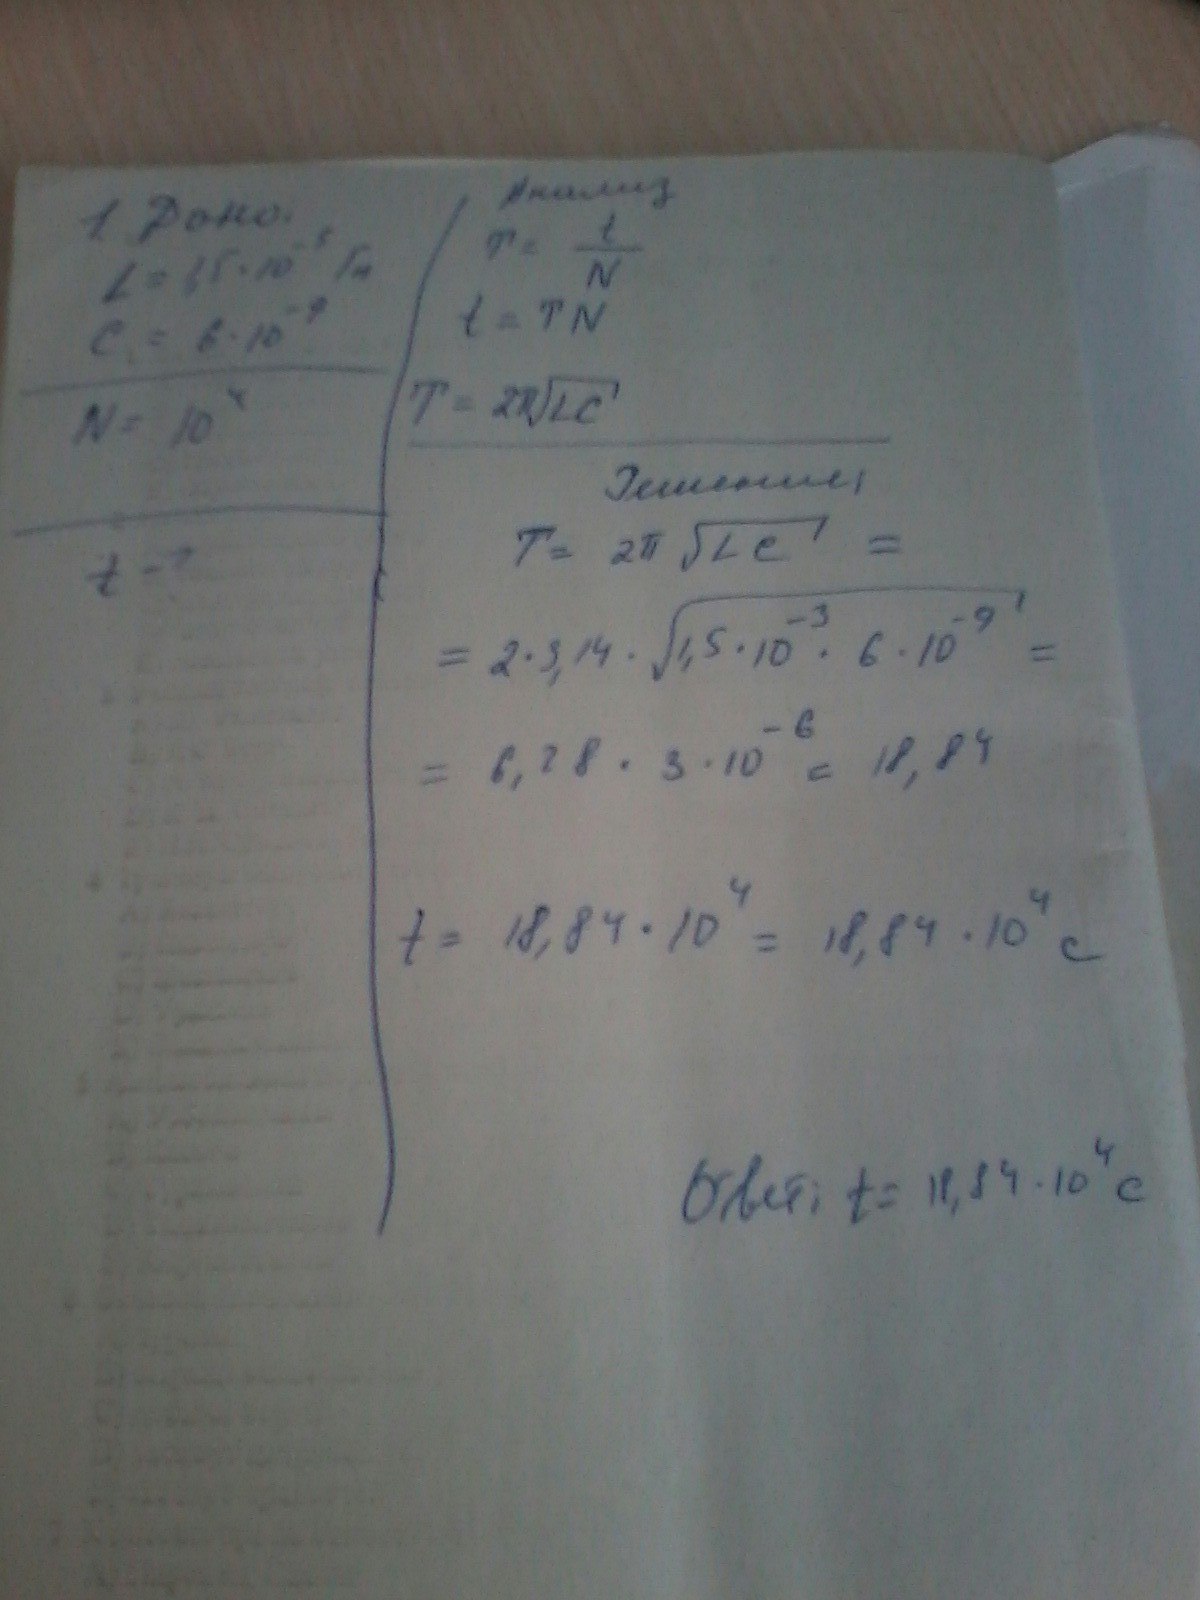 1 Дано.
L = 1,5 · 10⁻³ Гн
C = 6 · 10⁻⁹
N = 10⁴
t - ?
Анализ
T = t/N
t = TN
T = 2π√LC
Решение;
T = 2π √LC =
= 2 · 3,14 · √1,5 · 10⁻³ · 6 · 10⁻⁹ =
= 6,28 · 3 · 10⁻⁶ = 18,84
t = 18,84 · 10⁴ = 18,84 · 10⁴ с
Ответ; t = 18,84 · 10⁴ с